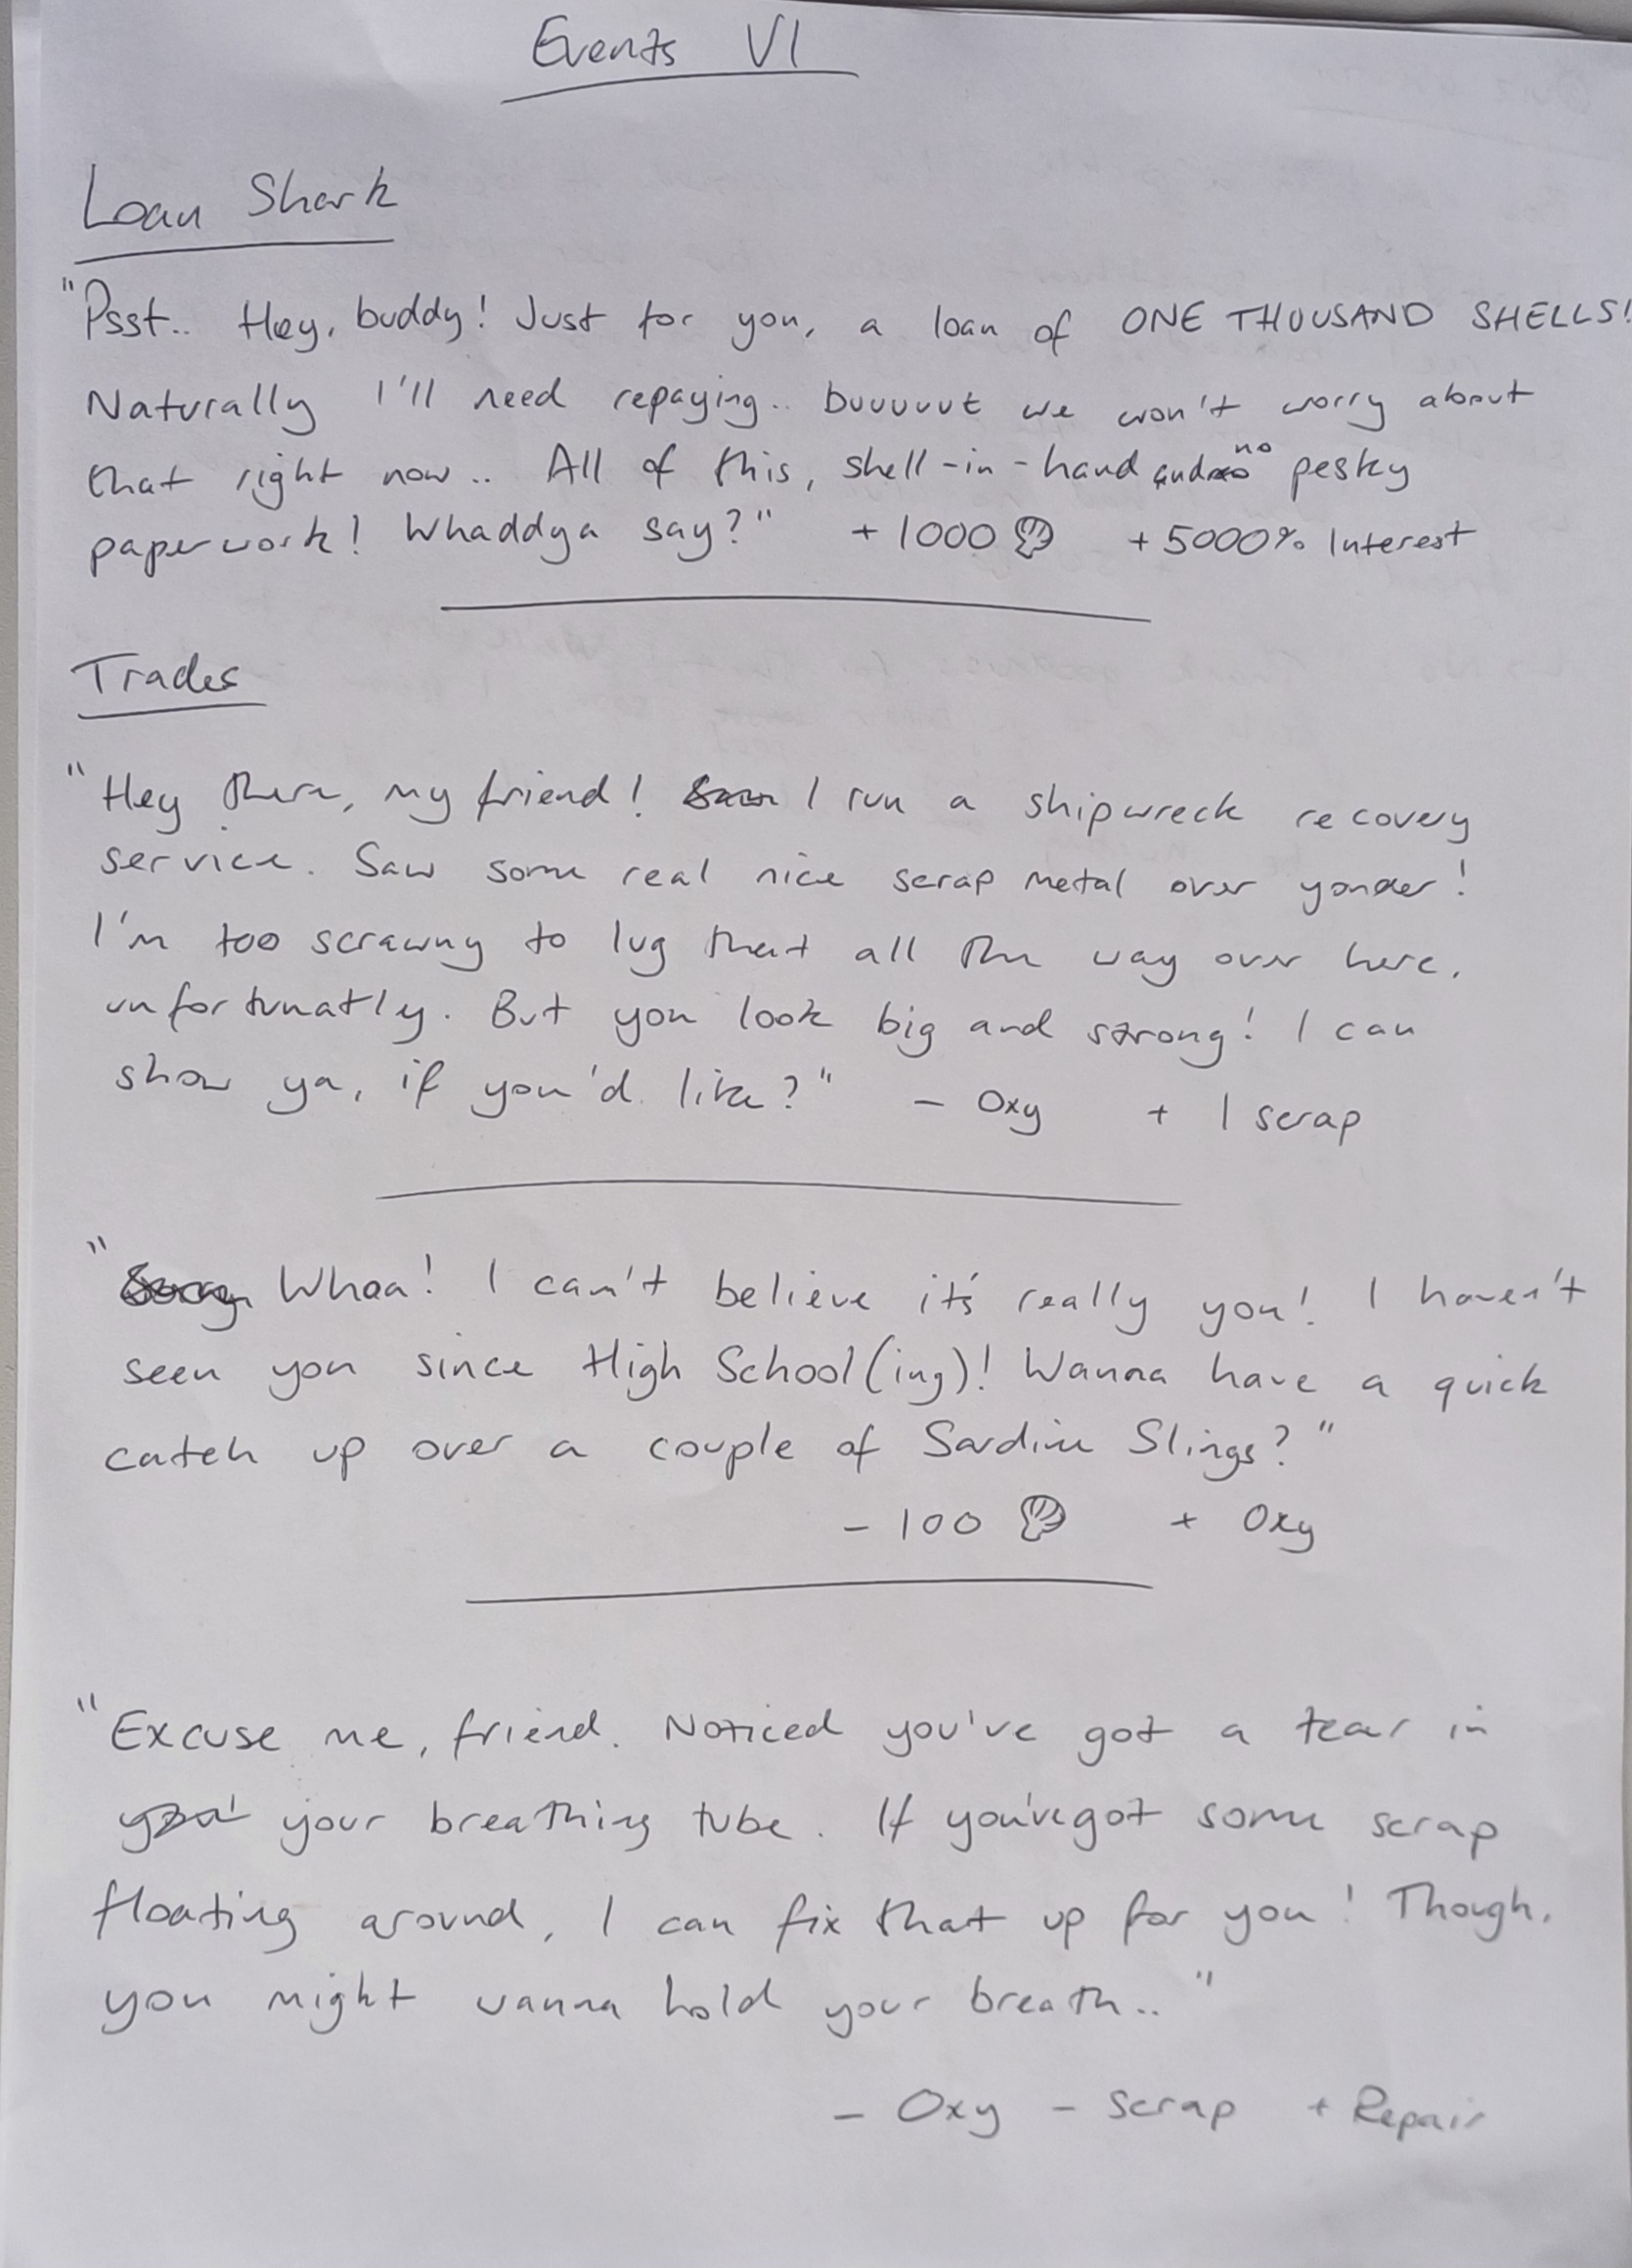 Events VI
Loan Shark
"Psst.. Hey, buddy! Just for you, a loan of ONE THOUSAND SHELLS!
Naturally I'll need repaying.. buuuuut we won't worry about
that right now.. All of this, shell-in-hand and no pesky
paperwork! Whaddya say?" +1000 +5000% Interest
Trades
"Hey there, my friend! I run a shipwreck recovery
service. Saw some real nice scrap metal over yonder!
I'm too scrawny to lug that all the way over here,
unfortunatly. But you look big and strong! I can
show ya, if you'd like?" - Oxy + 1 scrap
"Whoa! I can't believe it's really you! I haven't
seen you since High School(ing)! Wanna have a quick
catch up over a couple of Sardine Slings?"
- 100 + Oxy
"Excuse me, friend. Noticed you've got a tear in
your breathing tube. If you've got some scrap
floating around, I can fix that up for you! Though,
you might wanna hold your breath.."
- Oxy - Scrap + Repair